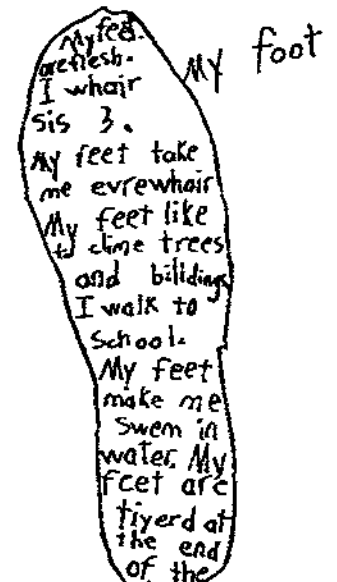 My foot
My feet
are flesh.
I whair
sis 3.
My feet take
me evrewhair
My feet like
to clime trees
and billdings
I walk to
school.
My feet
make me
swem in
water. My
feet are
tiyerd at
the end
of the